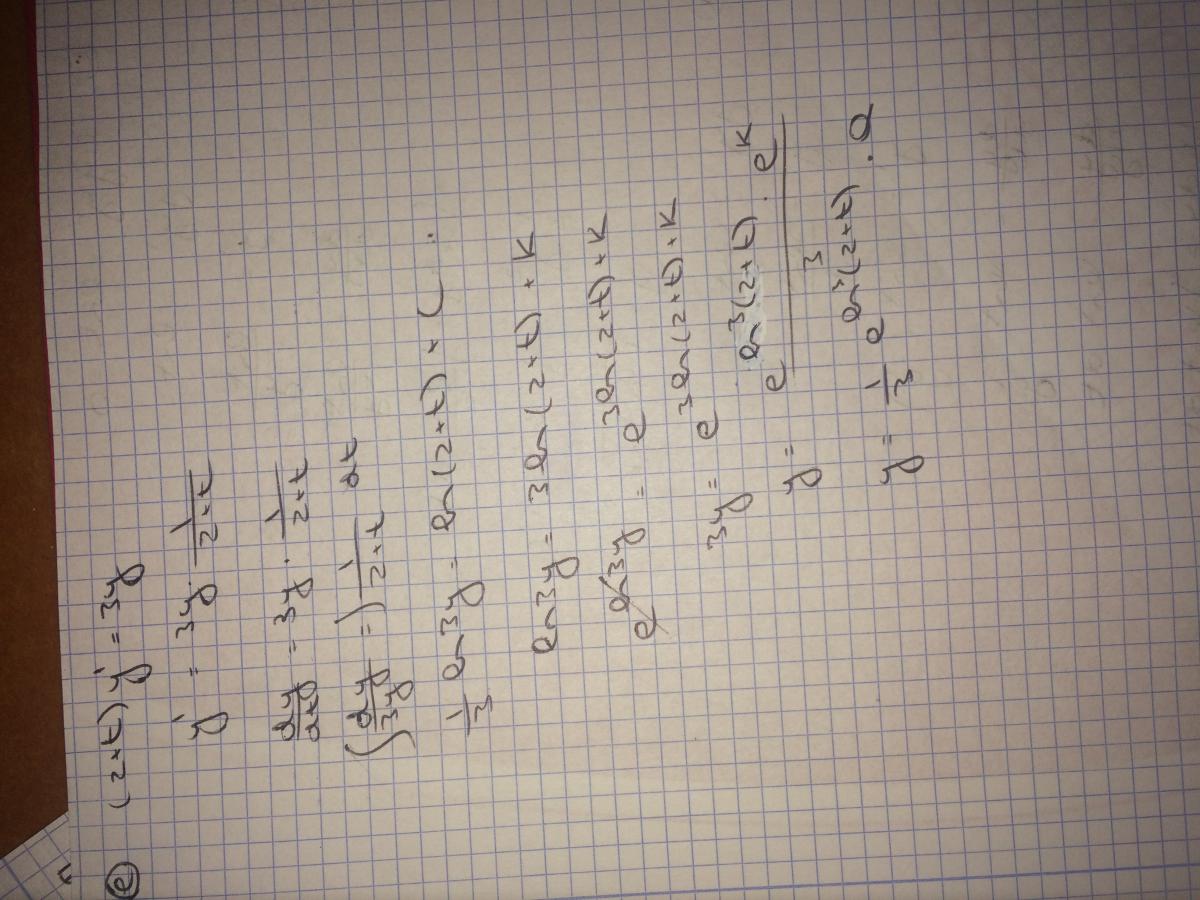 e) (2+t) y' = 3y
y' = 3y · 1/(2+t)
dy/dt = 3y · 1/(2+t)
∫ dy/3y = ∫ 1/(2+t) dt
1/3 ln 3y = ln(2+t) + C
ln 3y = 3 ln(2+t) + K
e^(ln 3y) = e^(3 ln(2+t) + K)
3y = e^(3 ln(2+t) + K)
y = (e^(ln³(2+t)) · e^K) / 3
y = 1/3 e^(ln³(2+t)) · a